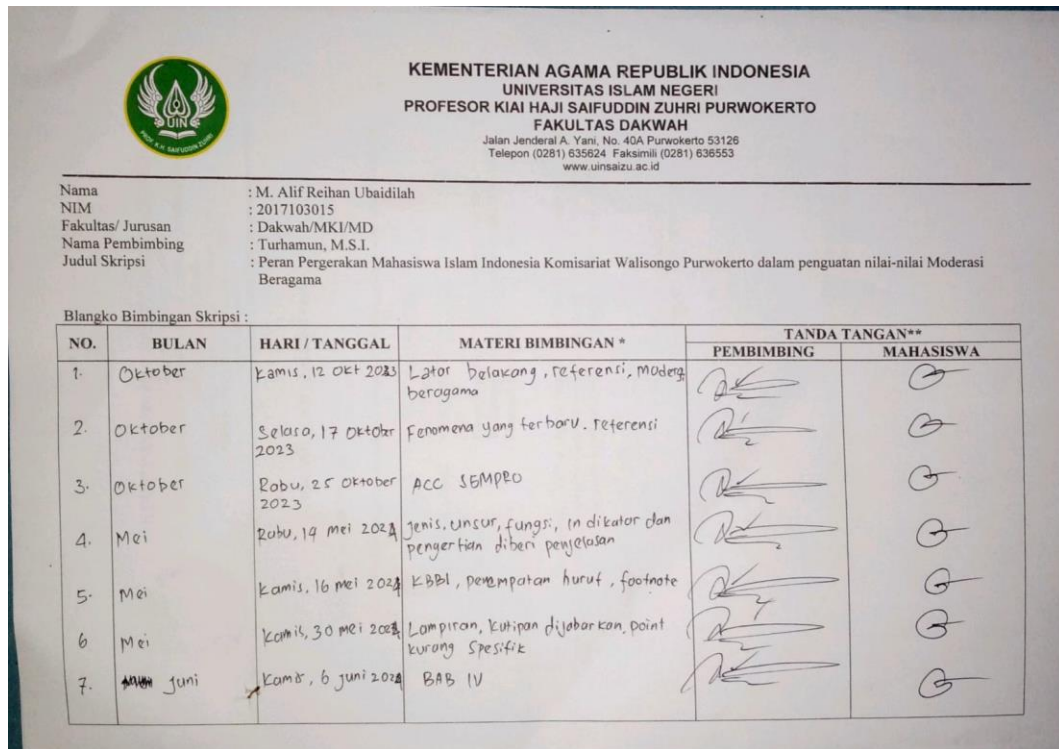 UIN
PROF. K.H. SAIFUDDIN ZUHRI
KEMENTERIAN AGAMA REPUBLIK INDONESIA
UNIVERSITAS ISLAM NEGERI
PROFESOR KIAI HAJI SAIFUDDIN ZUHRI PURWOKERTO
FAKULTAS DAKWAH
Jalan Jenderal A. Yani, No. 40A Purwokerto 53126
Telepon (0281) 635624 Faksimili (0281) 636553
www.uinsaizu.ac.id
Nama : M. Alif Reihan Ubaidilah
NIM : 2017103015
Fakultas/ Jurusan : Dakwah/MKI/MD
Nama Pembimbing : Turhamun, M.S.I.
Judul Skripsi : Peran Pergerakan Mahasiswa Islam Indonesia Komisariat Walisongo Purwokerto dalam penguatan nilai-nilai Moderasi
Beragama
Blangko Bimbingan Skripsi :
NO. BULAN HARI / TANGGAL MATERI BIMBINGAN * TANDA TANGAN**
PEMBIMBING MAHASISWA
1. Oktober Kamis, 12 Okt 2023 Latar belakang, referensi,
beragama
2. Oktober Selasa, 17 Oktober Fenomena yang terbaru. referensi
2023
3. Oktober Rabu, 25 Oktober ACC SEMPRO
2023
4. Mei Rabu, mei 2024 Jenis, Unsur, fungsi, indikator dan
pengertian diberi penjelasan
5. Mei Kamis, 16 mei 2024 KBBI, penempatan huruf, footnote
6 Mei Kamis, 30 mei 2024 Lampiran, kutipan dijabarkan, point
kurang spesifik
7. Juni Kamis, 6 juni 2024 BAB IV